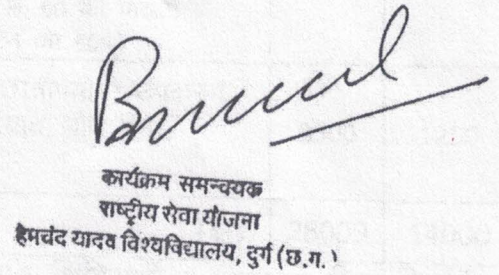 कार्यक्रम समन्वयक
राष्ट्रीय सेवा योजना
हेमचंद यादव विश्वविद्यालय, दुर्ग (छ.ग.)